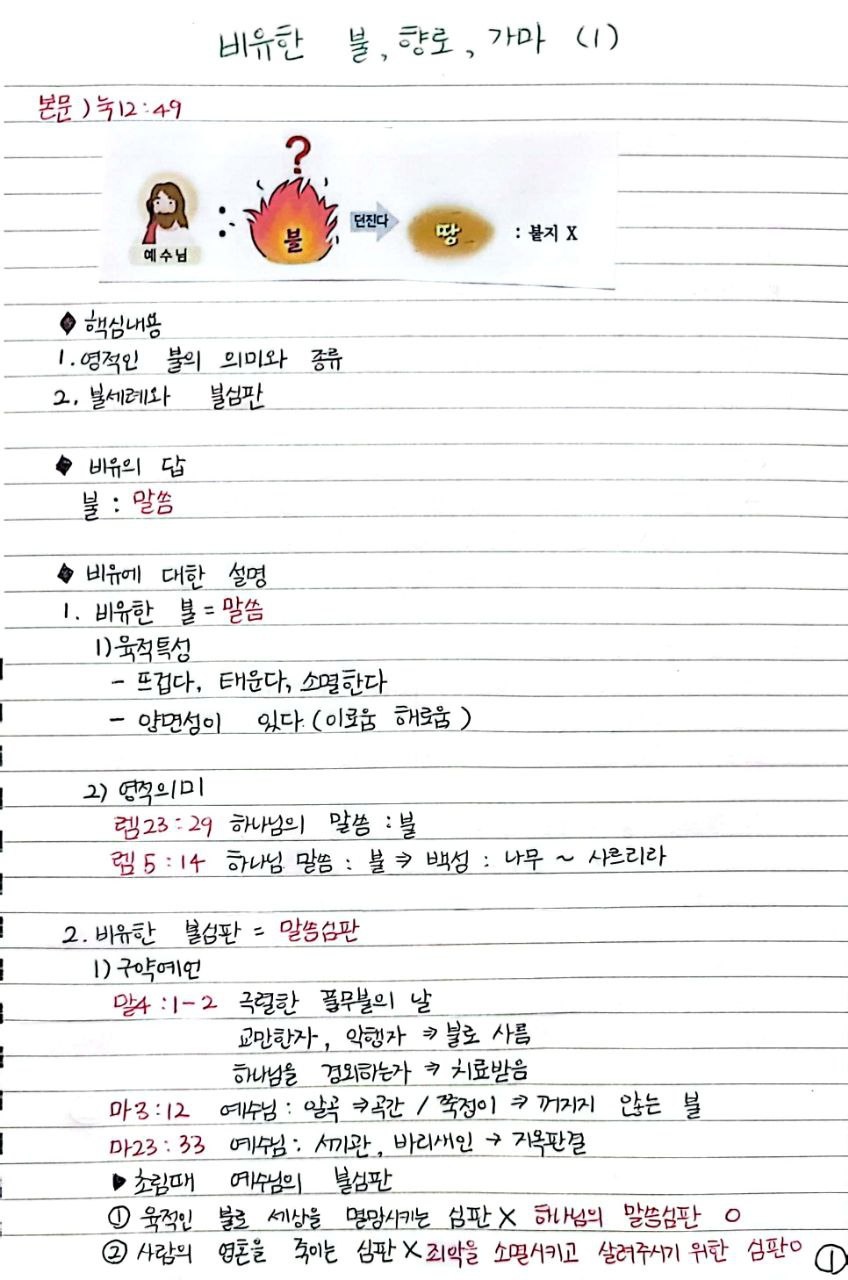 비유한 불, 향로, 가마 (1)
본문) 눅12:49
?
예수님 : 불 던진다 땅 : 불지 X
◆ 핵심내용
1. 영적인 불의 의미와 종류
2. 불세례와 불심판
◆ 비유의 답
불 : 말씀
◆ 비유에 대한 설명
1. 비유한 불 = 말씀
1) 육적특성
- 뜨겁다, 태운다, 소멸한다
- 양면성이 있다. (이로움 해로움)
2) 영적의미
렘23:29 하나님의 말씀 : 불
렘5:14 하나님 말씀 : 불 ⇒ 백성 : 나무 ~ 사르리라
2. 비유한 불심판 = 말씀심판
1) 구약예언
말4:1-2 극렬한 풀무불의 날
교만한자, 악행자 ⇒ 불로 사름
하나님을 경외하는자 ⇒ 치료받음
마3:12 예수님 : 알곡 ⇒ 곡간 / 쭉정이 ⇒ 꺼지지 않는 불
마23:33 예수님 : 서기관, 바리새인 → 지옥판결
▶ 초림때 예수님의 불심판
① 육적인 불로 세상을 멸망시키는 심판 X 하나님의 말씀심판 O
② 사람의 영혼을 죽이는 심판 X 죄악을 소멸시키고 살려주시기 위한 심판 O
①